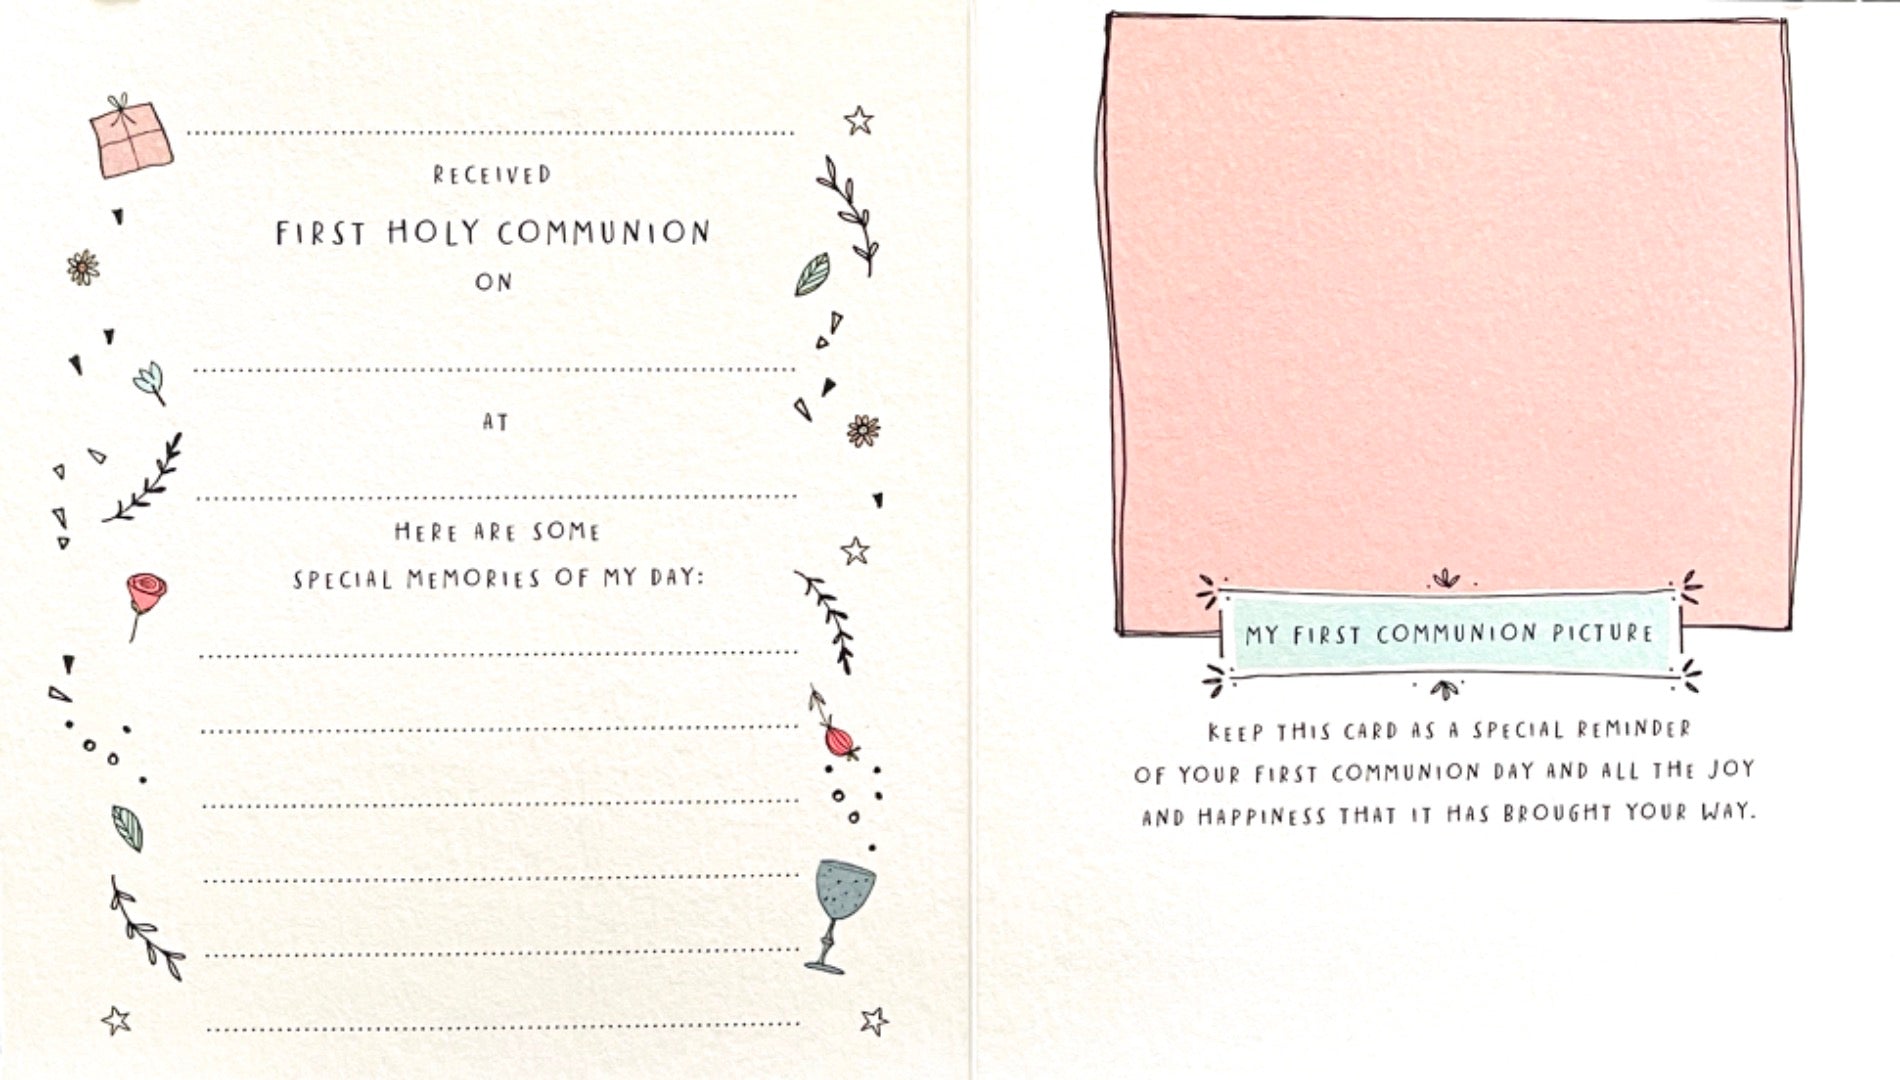 RECEIVED
FIRST HOLY COMMUNION
ON
AT
HERE ARE SOME
SPECIAL MEMORIES OF MY DAY:
MY FIRST COMMUNION PICTURE
KEEP THIS CARD AS A SPECIAL REMINDER
OF YOUR FIRST COMMUNION DAY AND ALL THE JOY
AND HAPPINESS THAT IT HAS BROUGHT YOUR WAY.